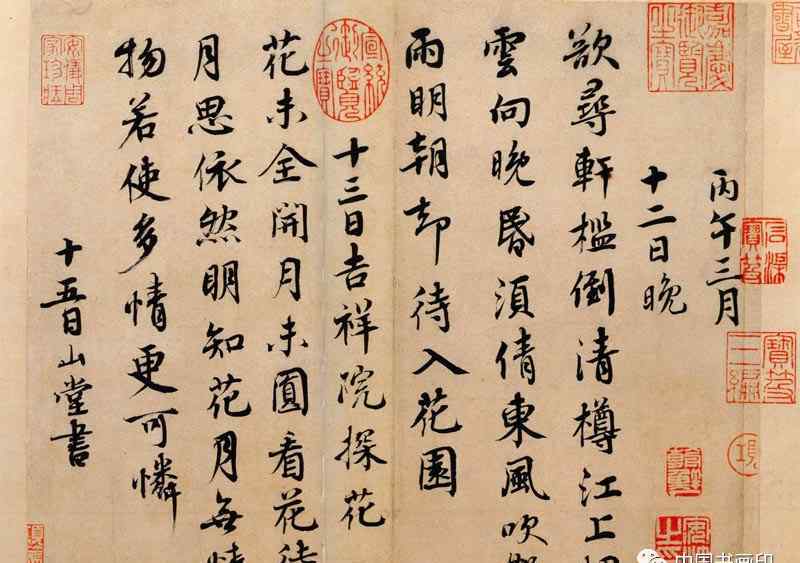 丙午三月
十二日晚
欲尋軒檻倒清樽江上
雲向晚昏須倩東風吹
雨明朝却待入花園
十三日吉祥院探花
花未全開月未圓看花待
月思依然明知花月無情
物若使多情更可憐
十五日山堂書
中国书画印